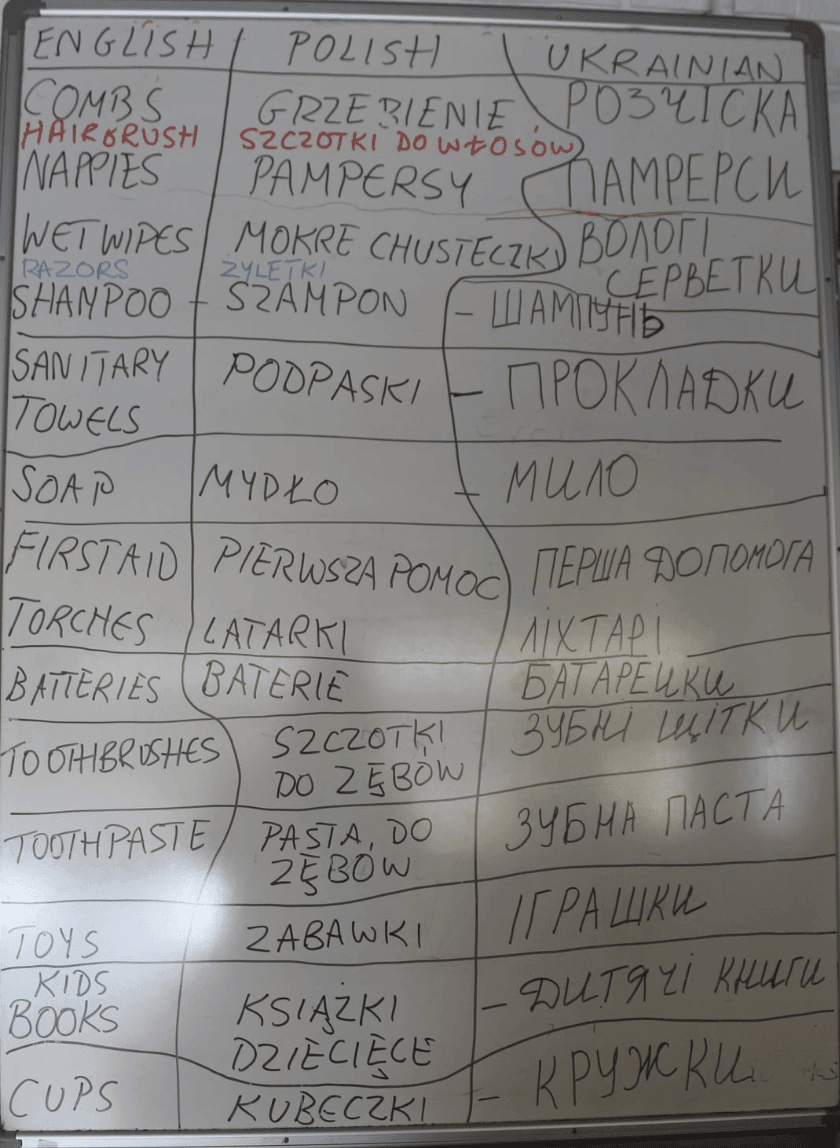 ENGLISH POLISH UKRAINIAN
COMBS GRZEBIENIE РОЗЧІСКА
HAIRBRUSH SZCZOTKI DO WŁOSÓW
NAPPIES PAMPERSY ПАМРЕРСИ
WET WIPES MOKRE CHUSTECZKI ВОЛОГІ
СЕРВЕТКИ
RAZORS ŻYLETKI
SHAMPOO - SZAMPON - ШАМПУНЬ
SANITARY PODPASKI - ПРОКЛАДКИ
TOWELS
SOAP MYDŁO - МИЛО
FIRST AID PIERWSZA POMOC ПЕРША ДОПОМОГА
TORCHES LATARKI ЛІХТАРІ
BATTERIES BATERIE БАТАРЕЙКИ
TOOTHBRUSHES SZCZOTKI ЗУБНІ ЩІТКИ
DO ZĘBÓW
TOOTHPASTE PASTA, DO ЗУБНА ПАСТА
ZĘBÓW
TOYS ZABAWKI ІГРАШКИ
KIDS
BOOKS KSIĄŻKI - ДИТЯЧІ КНИГИ
DZIECIĘCE
CUPS KUBECZKI - КРУЖКИ